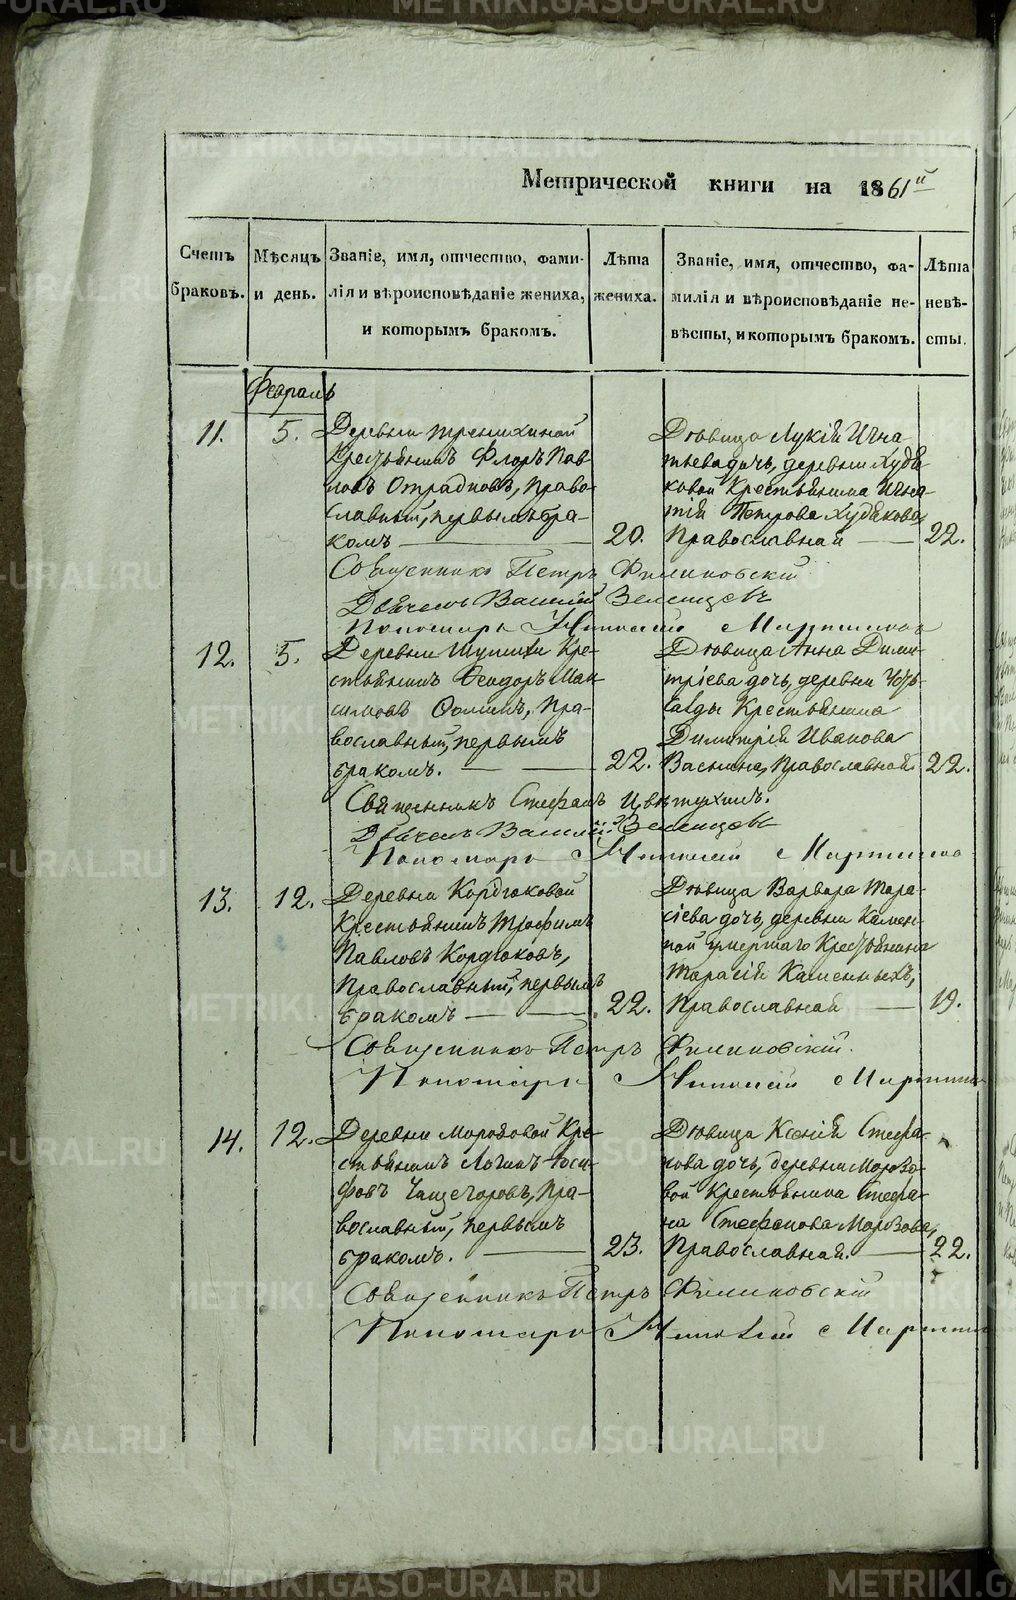 Метрической книги на 1861й
Счетъ браковъ.
Мѣсяцъ и день.
Званіе, имя, отчество, фами-
лія и вѣроисповѣданіе жениха,
и которымъ бракомъ.
Лѣта
жениха.
Званіе, имя, отчество, фа-
милія и вѣроисповѣданіе не-
вѣсты, и которымъ бракомъ.
Лѣта
невѣ-
сты.
Февраль
11. 5.
Деревни
Крестьянинъ Флоръ Пав-
ловъ Отрадновъ, Право-
славный, первымъ бра-
комъ 20.
Дѣвица Лукія Игна-
тьева дочь, деревни Худя-
ковой Крестьянина Игна-
тія Петрова Худякова,
Православная 22.
Священникъ Петръ Филиновскій
Дьячекъ Василій Зеленцовъ
Пономарь Николай Мартинов
12. 5.
Деревни Кре-
стьянинъ Феодоръ Мак-
симовъ Ооминъ, Пра-
вославный, первымъ
бракомъ. 22.
Дѣвица Анна Дими-
тріева дочь, деревни
Крестьянина
Димитрія Иванова
Васнина, Православная 22.
Священникъ Стефанъ Цвѣтухинъ.
Дьячекъ Василій Зеленцовъ
Пономарь Николай Мартинов
13. 12.
Деревни Кордюковой
Крестьянинъ Трофимъ
Павловъ Кордюковъ,
Православный, первымъ
бракомъ 22.
Дѣвица Варвара Тара-
сіева дочь, деревни Камен-
ной умершаго Крестьянина
Тарасія Каменныхъ,
Православная 19.
Священникъ Петръ Филиновскій.
Пономарь Николай Мартин
14. 12.
Деревни Морозовой Кре-
стьянинъ Логинъ Іоси-
фовъ Чащегоровъ, Пра-
вославный, первымъ
бракомъ. 23.
Дѣвица Ксенія Стефа-
нова дочь, деревни Морозо-
вой Крестьянина Стефа-
на Стефанова Морозова,
Православная. 22.
Священникъ Петръ Филиновскій
Пономарь Николай Мартин
METRIKI.GASO-URAL.RU